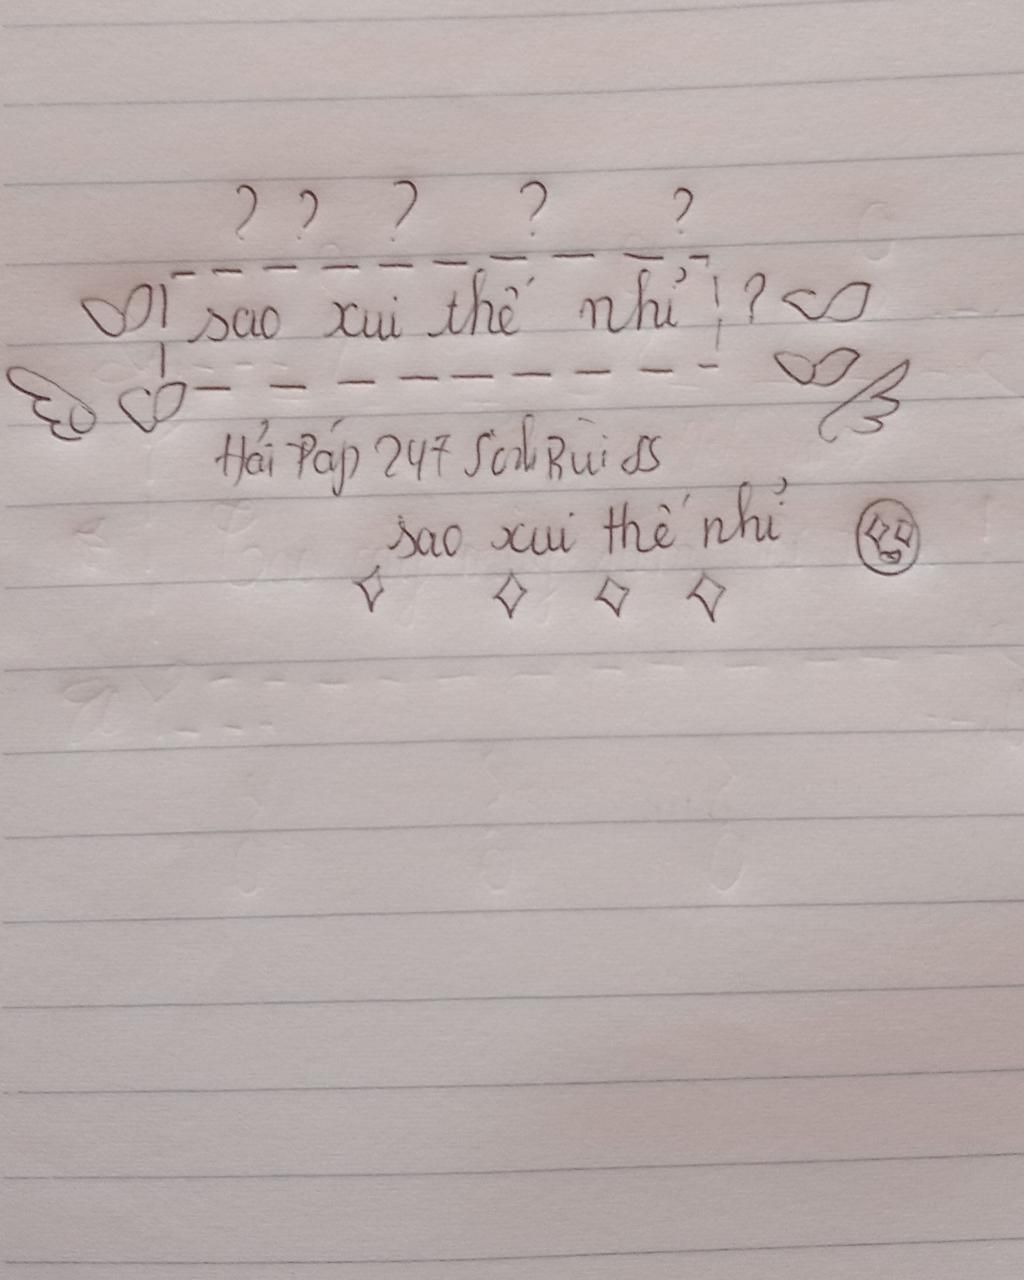 ? ? ? ? ?
sao xui thế nhỉ ?
Hải Páp 247
sao xui thế nhỉ